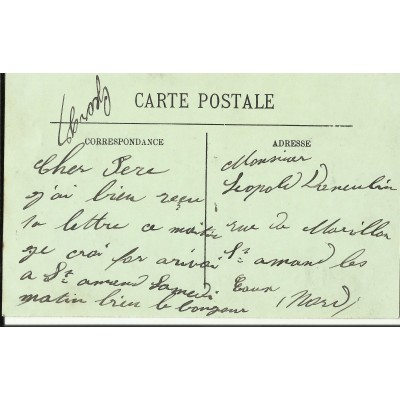 CARTE POSTALE
CORRESPONDANCE
Cher Pere
j'ai bien reçu
ta lettre ce matin
je crai par arivai
a St amand Samedi
matin bien le bonjour
ADRESSE
Monsieur
Leopold
rue du Marillon
St amand les
Eaux
(Nord)